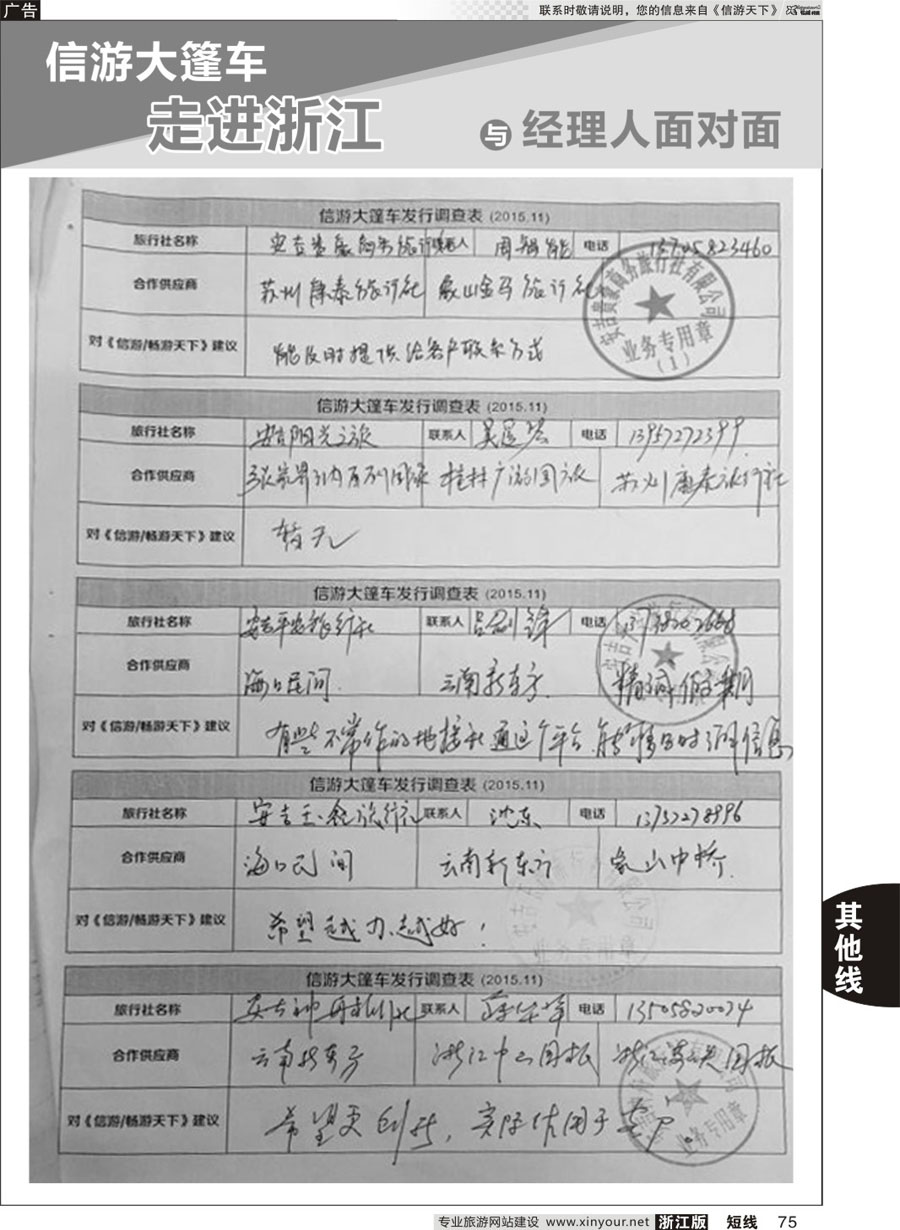 广告
联系时敬请说明，您的信息来自《信游天下》
信游大篷车
走进浙江
与 经理人面对面
信游大篷车发行调查表 (2015.11)
旅行社名称 联系人 电话
合作供应商 苏州康泰旅行社 象山金马旅行社
对《信游/畅游天下》建议 能及时提供给客户联系方式
安吉贵豪商务旅行社有限公司
业务专用章
(1)
信游大篷车发行调查表 (2015.11)
旅行社名称 安吉阳光之旅 联系人 电话 13957272399
合作供应商 桂林广游国旅 苏州康泰旅行社
对《信游/畅游天下》建议 暂无
信游大篷车发行调查表 (2015.11)
旅行社名称 安吉平安旅行社 联系人 电话
合作供应商 海口民间 云南新东方
对《信游/畅游天下》建议 有些不常作的地接社通过这个平台
信游大篷车发行调查表 (2015.11)
旅行社名称 联系人 沈东 电话 13757278996
合作供应商 海口民间 云南新东方 象山中桥
对《信游/畅游天下》建议 希望越办越好！
业务专用章
信游大篷车发行调查表 (2015.11)
旅行社名称 联系人 电话 13505820074
合作供应商 云南新东方 浙江中山国旅
对《信游/畅游天下》建议 希望更创新，实际作用于
业务专用章
其他线
专业旅游网站建设 www.xinyour.net 浙江版 短线 75